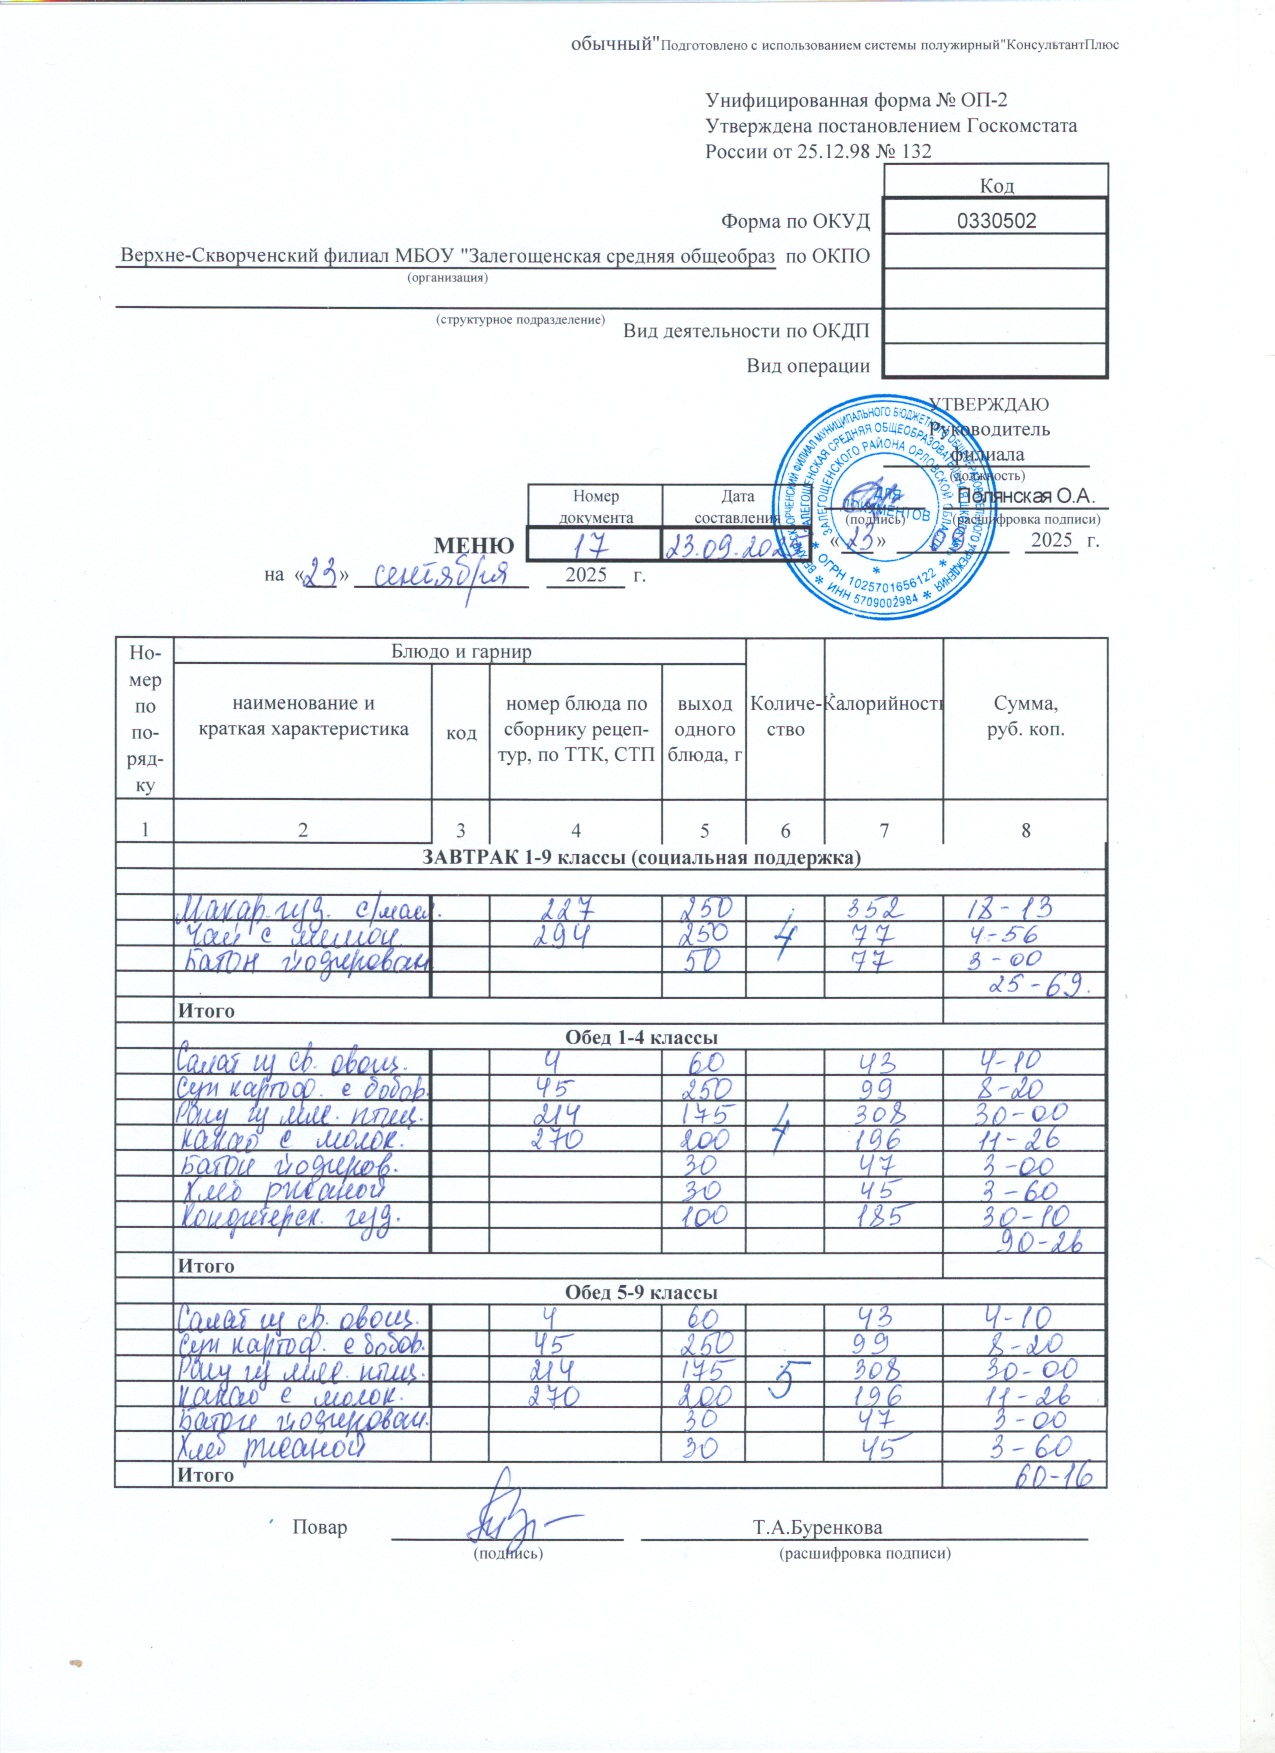 обычный"Подготовлено с использованием системы полужирный"КонсультантПлюс
Унифицированная форма № ОП-2
Утверждена постановлением Госкомстата
России от 25.12.98 № 132
Код
Форма по ОКУД 0330502
Верхне-Скворченский филиал МБОУ "Залегощенская средняя общеобраз по ОКПО
(организация)
(структурное подразделение)
Вид деятельности по ОКДП
Вид операции
УТВЕРЖДАЮ
Руководитель
филиала
(должность)
Полянская О.А.
(подпись) (расшифровка подписи)
«23» 2025 г.
ДЛЯ ДОКУМЕНТОВ
ОГРН 1025701656122
ИНН 5709002984
Номер документа Дата составления
МЕНЮ 17 23.09.2025
на «23» сентября 2025 г.
Но-мер по по-ряд-ку Блюдо и гарнир Количе-ство Калорийность Сумма, руб. коп.
наименование и краткая характеристика код номер блюда по сборнику рецеп-тур, по ТТК, СТП выход одного блюда, г
1 2 3 4 5 6 7 8
ЗАВТРАК 1-9 классы (социальная поддержка)
Макар.изд. с/масл. 227 250 352 18-13
Чай с лимон. 294 250 4 77 4-56
Батон йодирован 50 77 3-00
25-69.
Итого
Обед 1-4 классы
Салат из св. овощ. 4 60 43 4-10
Суп картоф. с бобов. 45 250 99 8-20
Рагу из мяс. птиц. 214 175 4 308 30-00
Какао с молок. 270 200 196 11-26
Батон йодиров. 30 47 3-00
Хлеб ржаной 30 45 3-60
Кондитерск. изд. 100 185 30-10
90-26
Итого
Обед 5-9 классы
Салат из св. овощ. 4 60 43 4-10
Суп картоф. с бобов. 45 250 99 8-20
Рагу из мяс. птиц. 214 175 5 308 30-00
Какао с молок. 270 200 196 11-26
Батон йодирован. 30 47 3-00
Хлеб ржаной 30 45 3-60
Итого 60-16
Повар Т.А.Буренкова
(подпись) (расшифровка подписи)